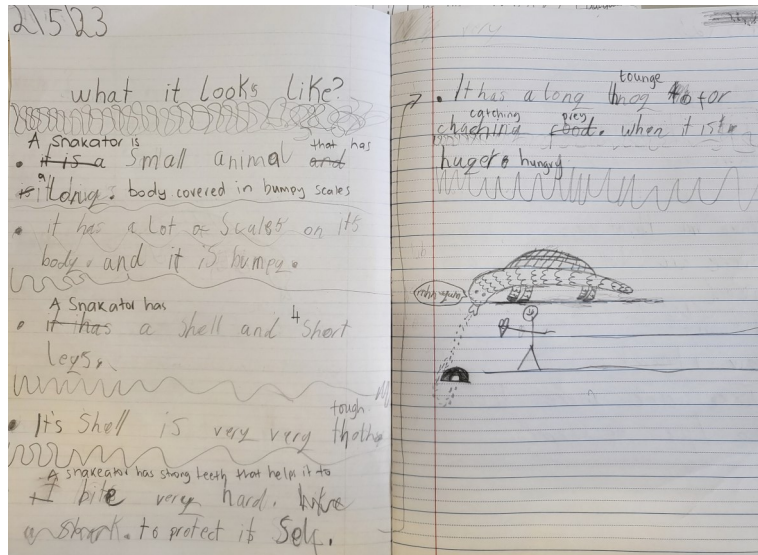 2/5/23
what it looks like?
A snakator is that has
• it is a small animal and
a
is itlong. body covered in bumpy scales
• it has a lot of scales on its
body. and it is bumpy.
A snakator has
• it has a shell and 4 short
legs.
tough
• It's shell is very very
A snakeator has strong teeth that helps it to
I bite very hard. like
a shark. to protect it self.
tounge
• It has a long for
catching prey
chaching food. when it is
huger. hungry